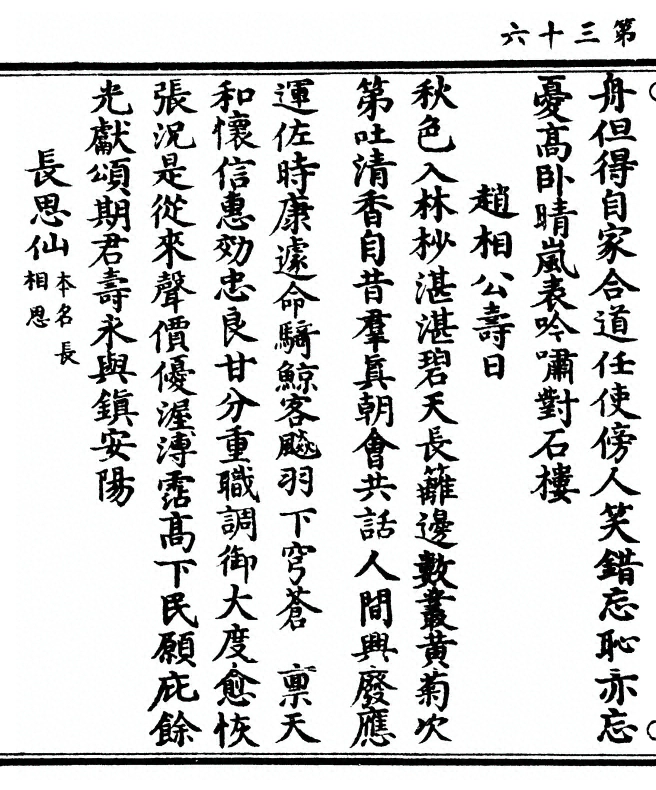 第三十六
舟但得自家合道任使傍人笑錯忘恥亦忘
憂高卧晴嵐表吟嘯對石樓
趙相公壽日
秋色入林杪湛湛碧天長籬邊數叢黃菊次
第吐清香自昔羣真朝會共話人間興廢應
運佐時康遽命騎鯨客飈羽下穹蒼　稟天
和懷信惠効忠良甘分重職調御大度愈恢
張況是從來聲價優渥溥霑高下民願庇餘
光獻頌期君壽永與鎮安陽
長思仙本名長相思